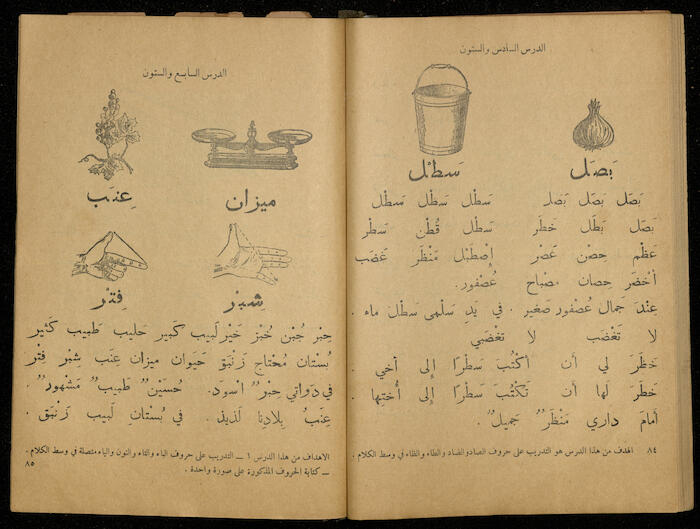 الدرس السادس والستون
بَصَل
سَطْل
بَصَل بَصَل بَصَل سَطْل سَطْل سَطْل
بَصَل بَطَل خطَر سَطْل قُطْن سَطْر
عَظْم حِصْن عَصْر إصْطَبْل مَنْظَر غضَب
أخْضَر حِصان مِصباح عُصْفور.
عِنْدَ جَمال عُصْفور صَغير. في يَدِ سَلْمى سَطْل ماء.
لا تَغْضَب لا تَغْضَبي
خطَرَ لي أن أكْتُبَ سَطْرًا إلى أخي.
خطَرَ لَها أن تَكْتُبَ سَطْرًا إلى أُختِها.
أمامَ داري مَنْظَرٌ جَميلٌ.
٨٤ الهدف من هذا الدرس هو التدريب على حروف الصاد والضاد والطاء والظاء في وسط الكلام.
الدرس السابع والستون
ميزان
عِنَب
شِبْر
فِتْر
حِبْر جُبْن خُبْز خَيْر لَبيب كَبير حَليب طَبيب كَثير
بُسْتان مُحْتاج زَنْبَق حَيَوان ميزان عِنَب شِبْر فتر
في دَواتي حِبْرٌ اسوَد. حُسَيْنٌ طَبيبٌ مَشهورٌ.
عِنَبُ بِلادِنا لَذيذ. في بُسْتانِ لَبيب زَنْبَق.
الاهداف من هذا الدرس ١ ــ التدريب على حروف الباء والتاء والنون والياء متصلة في وسط الكلام.
ــ كتابة الحروف المذكورة على صورة واحدة.
٨٥